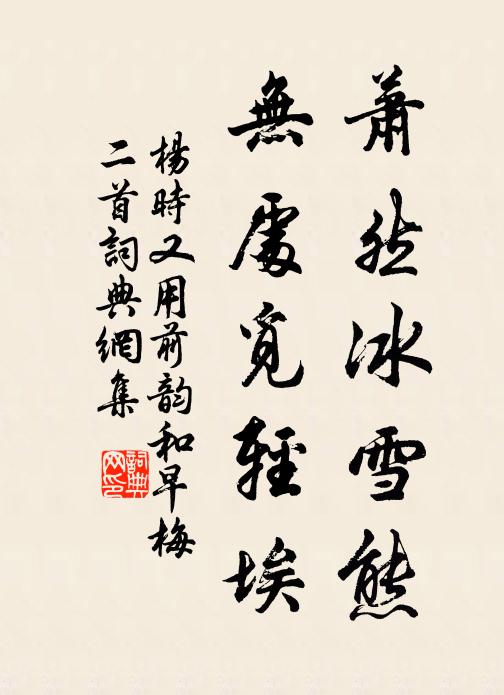 蕭然冰雪態
無處覓輕埃
楊時又用前韵和早梅
二首詞典網集
詞典
网印